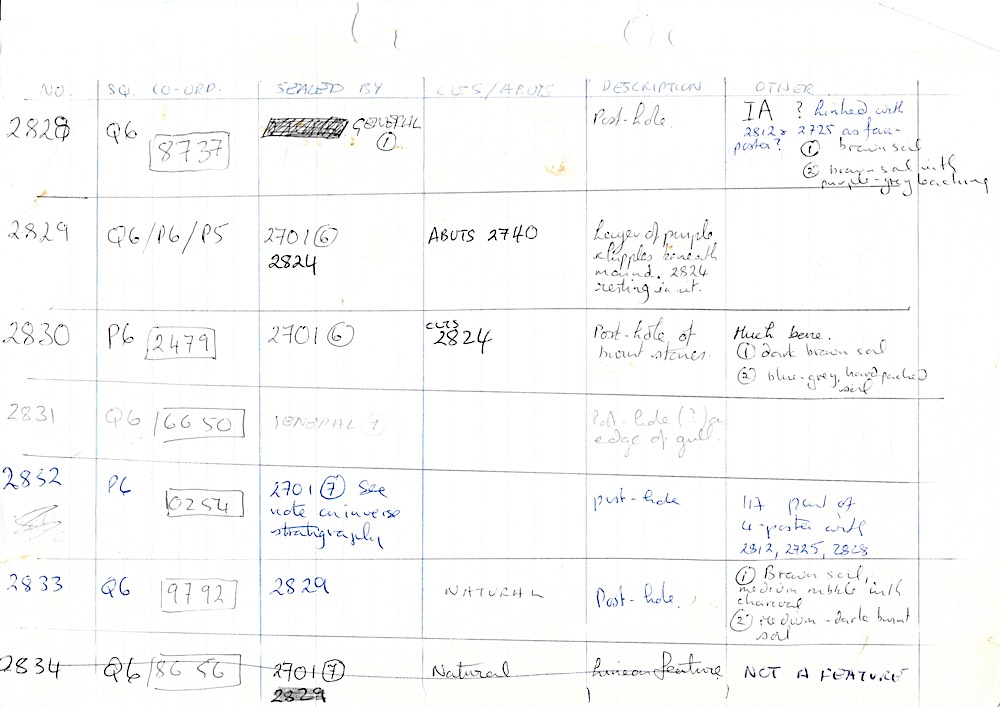 NO. SQ. CO-ORD. SEALED BY CUTS/ABUTS DESCRIPTION OTHER
2828 Q6 8737 GENERAL ① Post-hole. IA ? Linked with
2812 & 2725 as four-
poster? ① brown soil
② brown soil with
purple-grey backing
2829 Q6/P6/P5 2701⑥ ABUTS 2740 Layer of purple
2824 beneath
mound. 2824
resting in it.
2830 P6 2479 2701⑥ CUTS 2824 Post-hole of Much bone.
burnt stones. ① dark brown soil
② blue-grey, hard packed
soil
2831 Q6 6650 GENERAL ① Post-hole (?) on
edge of gull.
2832 P6 0254 2701⑦ See post-hole IA part of
note on inverse 4-poster with
stratigraphy 2812, 2725, 2828
2833 Q6 9792 2829 NATURAL Post-hole. ① Brown soil,
medium rubble with
charcoal
② medium-dark burnt
soil
2834 Q6 8656 2701⑦ Natural Linear feature NOT A FEATURE
2829